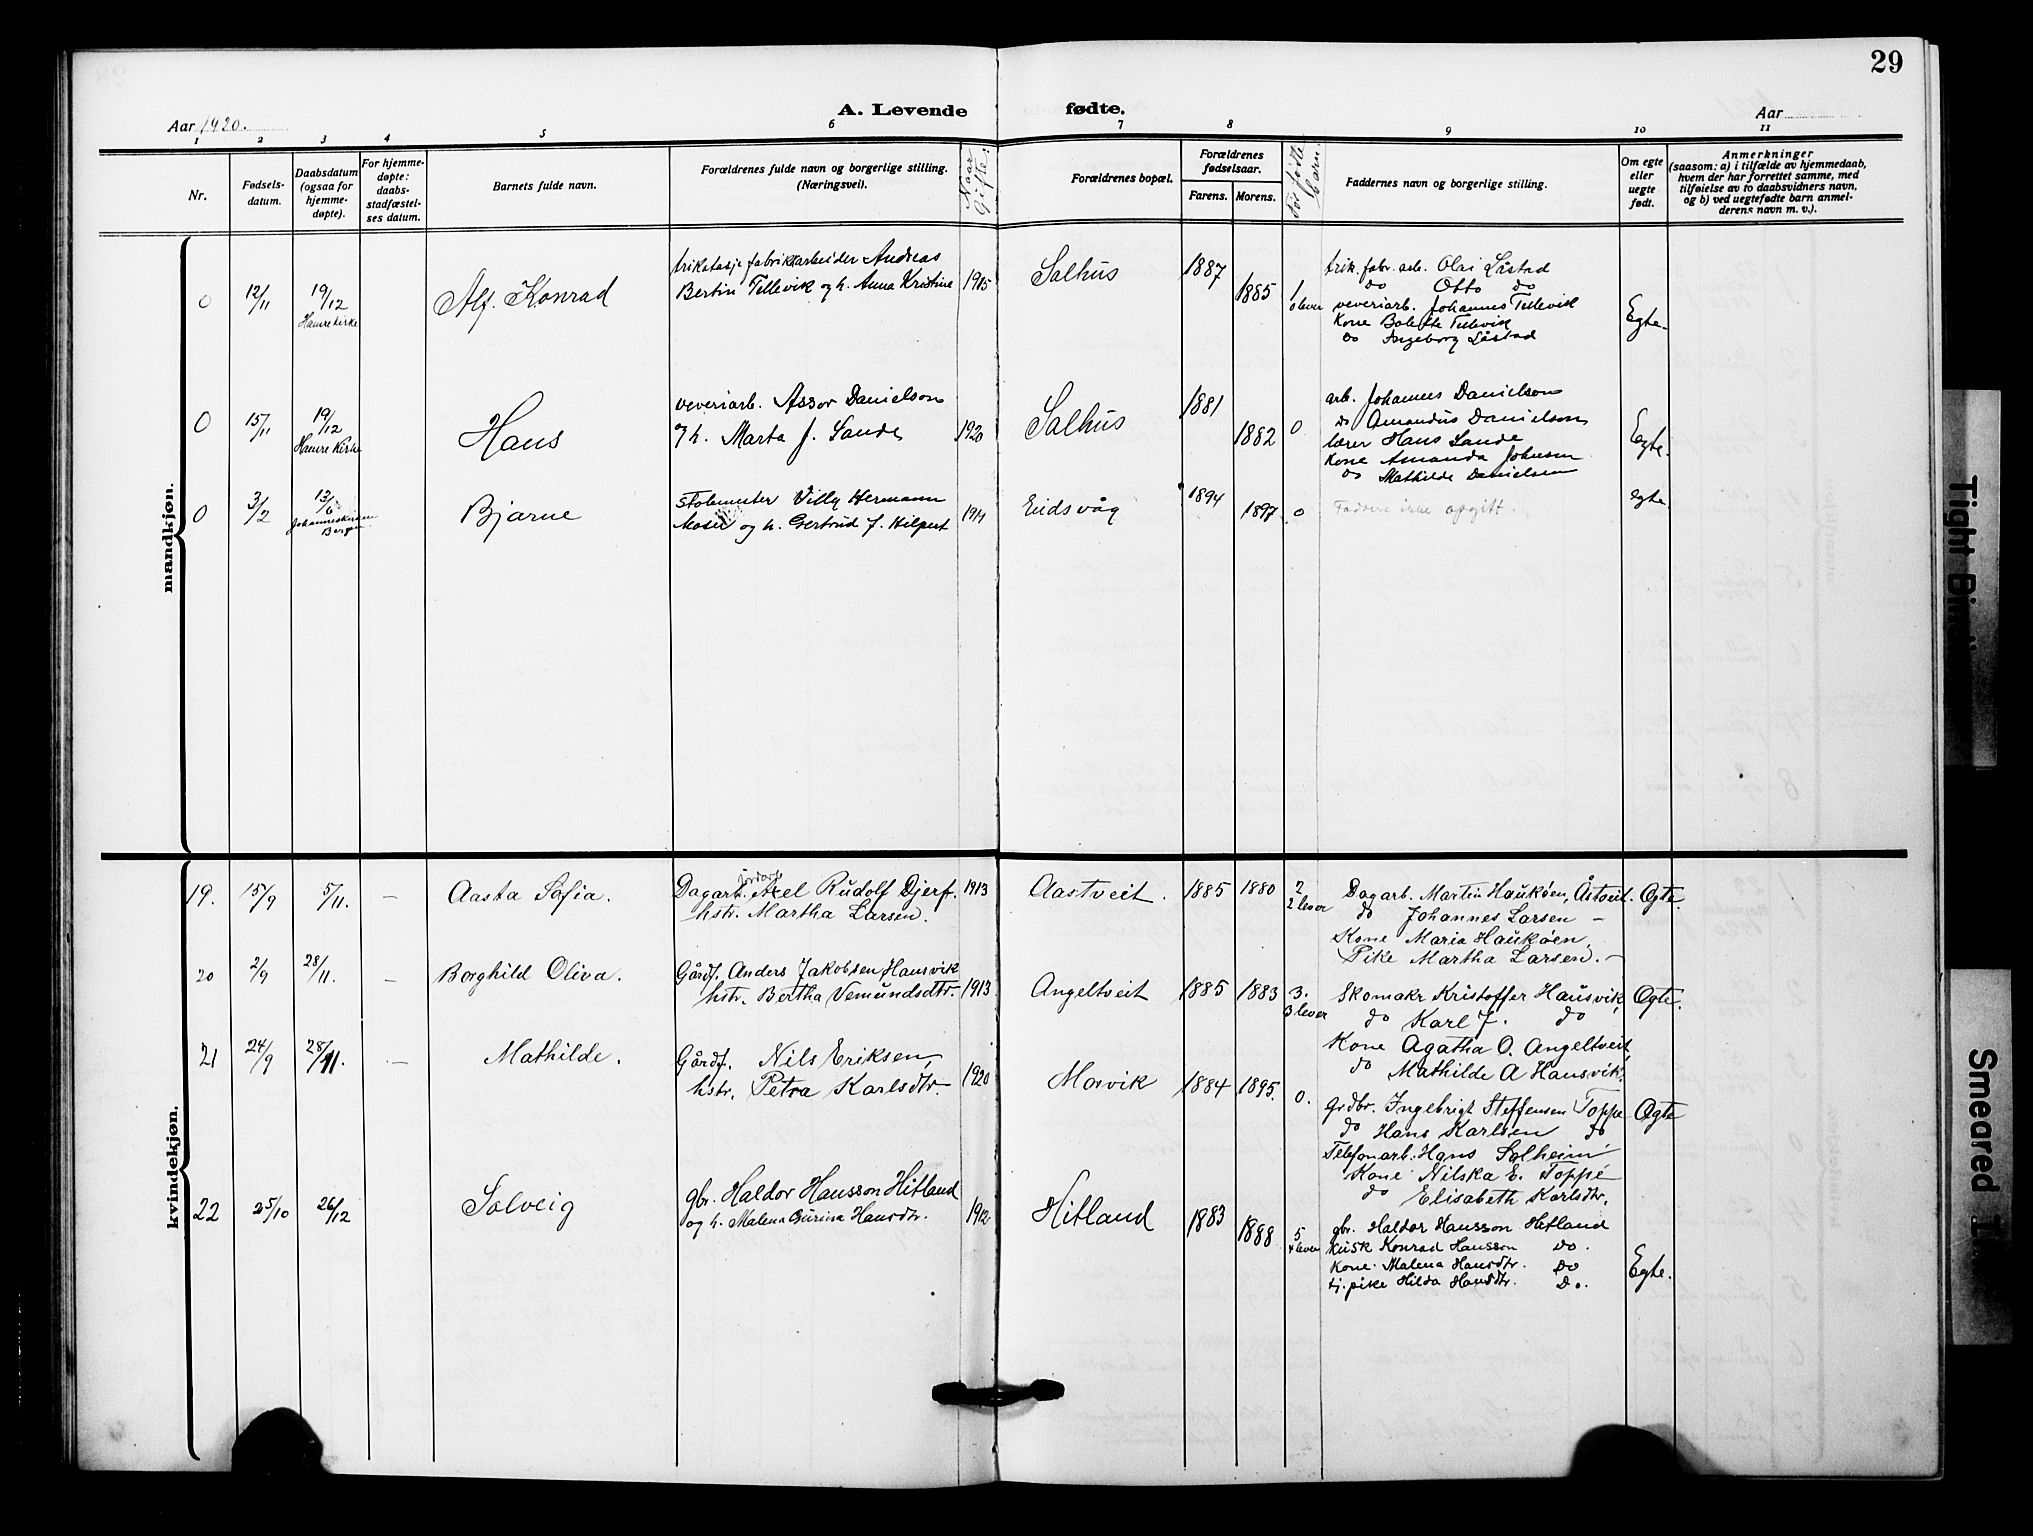 29
A. Levende fødte.
Aar 1920.
Aar
1 2 3 4 5 6 7 8 9 10 11
Nr.
Fødsels-
datum.
Daabsdatum
(ogsaa for
hjemme-
døpte).
For hjemme-
døpte:
daabs-
stadfæstel-
ses datum.
Barnets fulde navn.
Forældrenes fulde navn og borgerlige stilling.
(Næringsvei).
Naar
Gifte.
Forældrenes bopæl.
Forældrenes
fødselsaar.
Farens. Morens.
Før fødte
barn.
Faddernes navn og borgerlige stilling.
Om egte
eller
uegte
født.
Anmerkninger
(saasom: a) i tilfælde av hjemmedaab,
hvem der har forrettet samme, med
tilføielse av to daabsvidners navn,
og b) ved uegtefødte barn anmel-
derens navn m. v.).
mandkjøn.
0 12/11 19/12 Hamre kirke
Alf Konrad
trikotasje fabrikkarbeider Andreas
Bertin Tellevik og h. Anna Kristine 1915
Salhus 1887 1885 1
olever
trik. fabr. arb. Olai Låstad
do Otto do
veveriarb. Johannes Tellevik
Kone Bolette Tellevik
do Ingeborg Låstad
Egte.
0 15/11 19/12 Hamre Kirke
Hans
veveriarb. Assor Danielson
og h. Marta J. Sande 1920
Salhus 1881 1882 0
arb. Johannes Danielson
do Amandus Danielson
lærer Hans Sande
Kone Amanda Johnsen
do Mathilde Danielsen
Egte.
0 3/2 13/6 Johanneskirken
Bergen
Bjarne
Villy Hermann
og h. Gertrud f. Hilpert 1919
Eidsvåg 1894 1897 0
Faddere ikke opgitt.
egte.
kvindekjøn.
19. 15/9 5/11. —
Aasta Sofia.
Dagarb. Axel Rudolf Djerf.
hstr. Martha Larsen. 1913
Aastveit. 1885 1880 2
2 lever
Dagarb. Martin Haukøen, Åstveit.
do Johannes Larsen —
Kone Maria Haukøen,
Pike Martha Larsen. —
Ægte.
20 2/9 28/11. —
Borghild Oliva.
Gårdf. Anders Jakobsen Hansvik
hstr. Bertha Vemundsdtr. 1913
Angeltveit 1885 1883 3.
3 lever
Skomakr Kristoffer Hausvik,
do Karl J. do
Kone Agatha O. Angeltveit,
do Mathilde A Hausvik.
Ægte.
21 24/9 28/11. —
Mathilde.
Gårdf. Nils Eriksen,
hstr. Petra Karlsdtr. 1920
Morvik 1884 1895. 0.
Grdbr. Ingebrigt Steffensen Toppe
do Hans Karlsen do
Telefonarb. Hans Solheim
Kone Nilska E. Toppe
do Elisabeth Karlsdtr.
Ægte
22 25/10 26/12
Solveig
gbr. Haldor Hansson Hitland
og h. Malena Gurina Hansdtr. 1912
Hitland 1883 1888 5
4 lever
gbr. Haldor Hansson Hitland
Kusk Konrad Hansson do.
Kone Malena Hansdtr. Do
tj. pike Hilda Hansdtr. Do.
Egte.
Tight Bin
Smeared